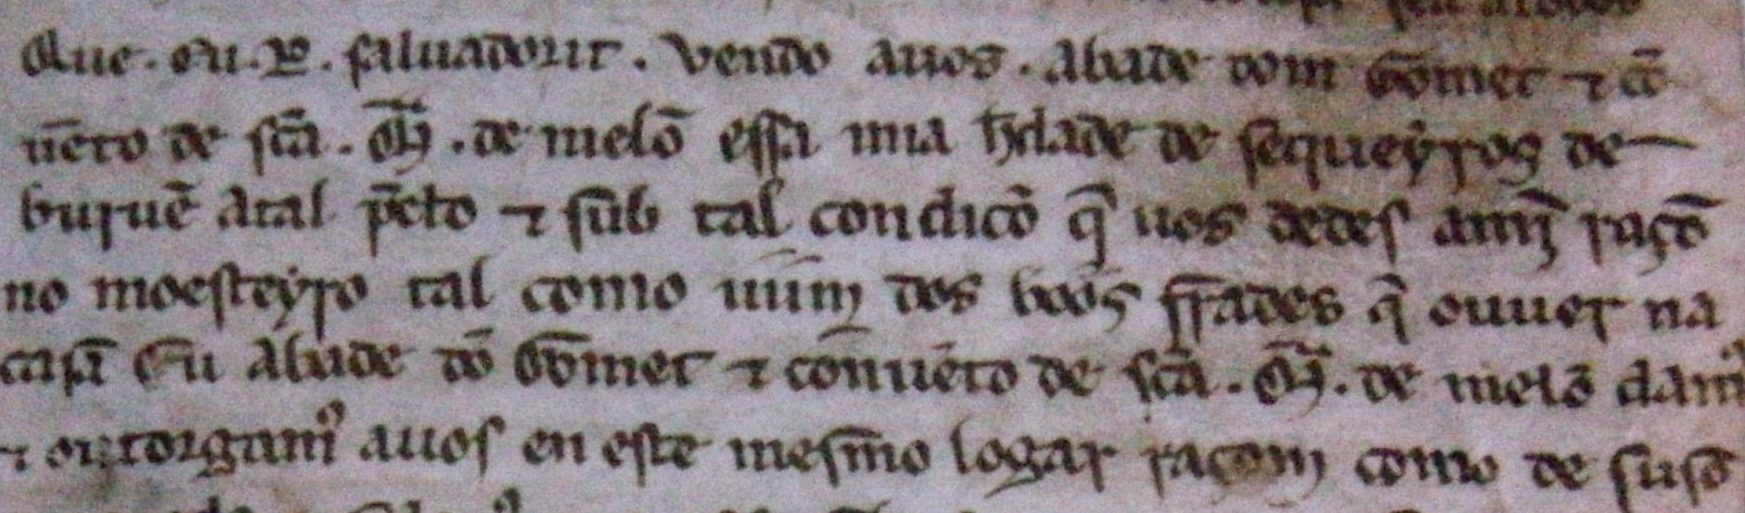 Que . eu . P . saluadoriz . vendo auos . Abade dom Gomet ⁊ cō
uēto de sc̄a . M̄ . de melō essa mia h̄dade de sequeyros de
buruē Atal p̄cto ⁊ sub tal condicō q̄ uos dedes amī raçō
no moesteyro tal como uum dos boos frades q̄ ouuer na
casa Eu Abade dō Gōmet ⁊ conuēto de sc̄a . M̄ . de melō damꝰ
⁊ outorgamꝰ auos en este mesmo logar raçom como de suso